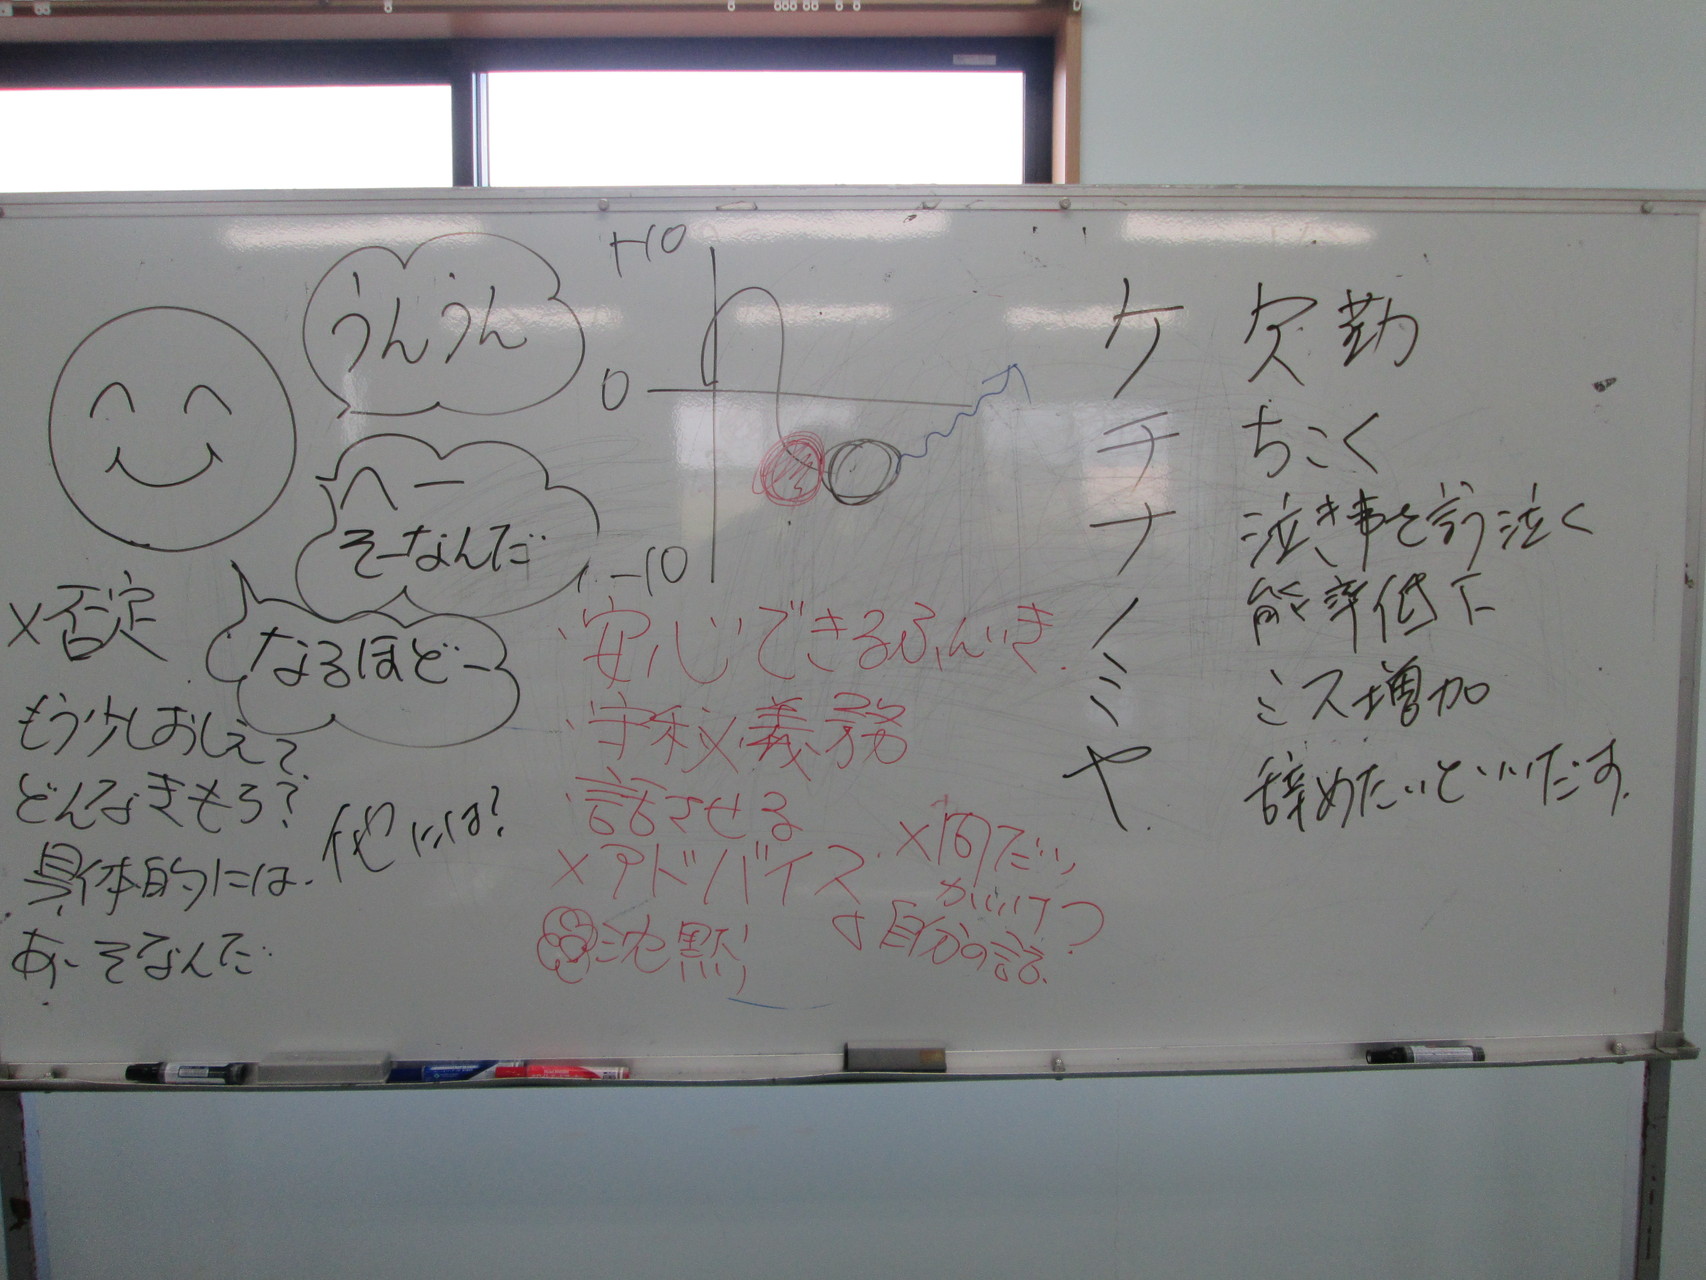 うんうん
へー
そーなんだ
なるほどー
×否定
もう少しおしえて
どんなきもち?
具体的には.
他には?
あ、そなんだ
+10
0
-10
・安心できるふんいき.
・守秘義務
・話させる
×アドバイス
沈黙
自分の話.
ケ 欠勤
チ ちこく
ナ 泣き事を言う泣く
ノ 能率低下
ミ ミス増加
ヤ 辞めたいといいだす.